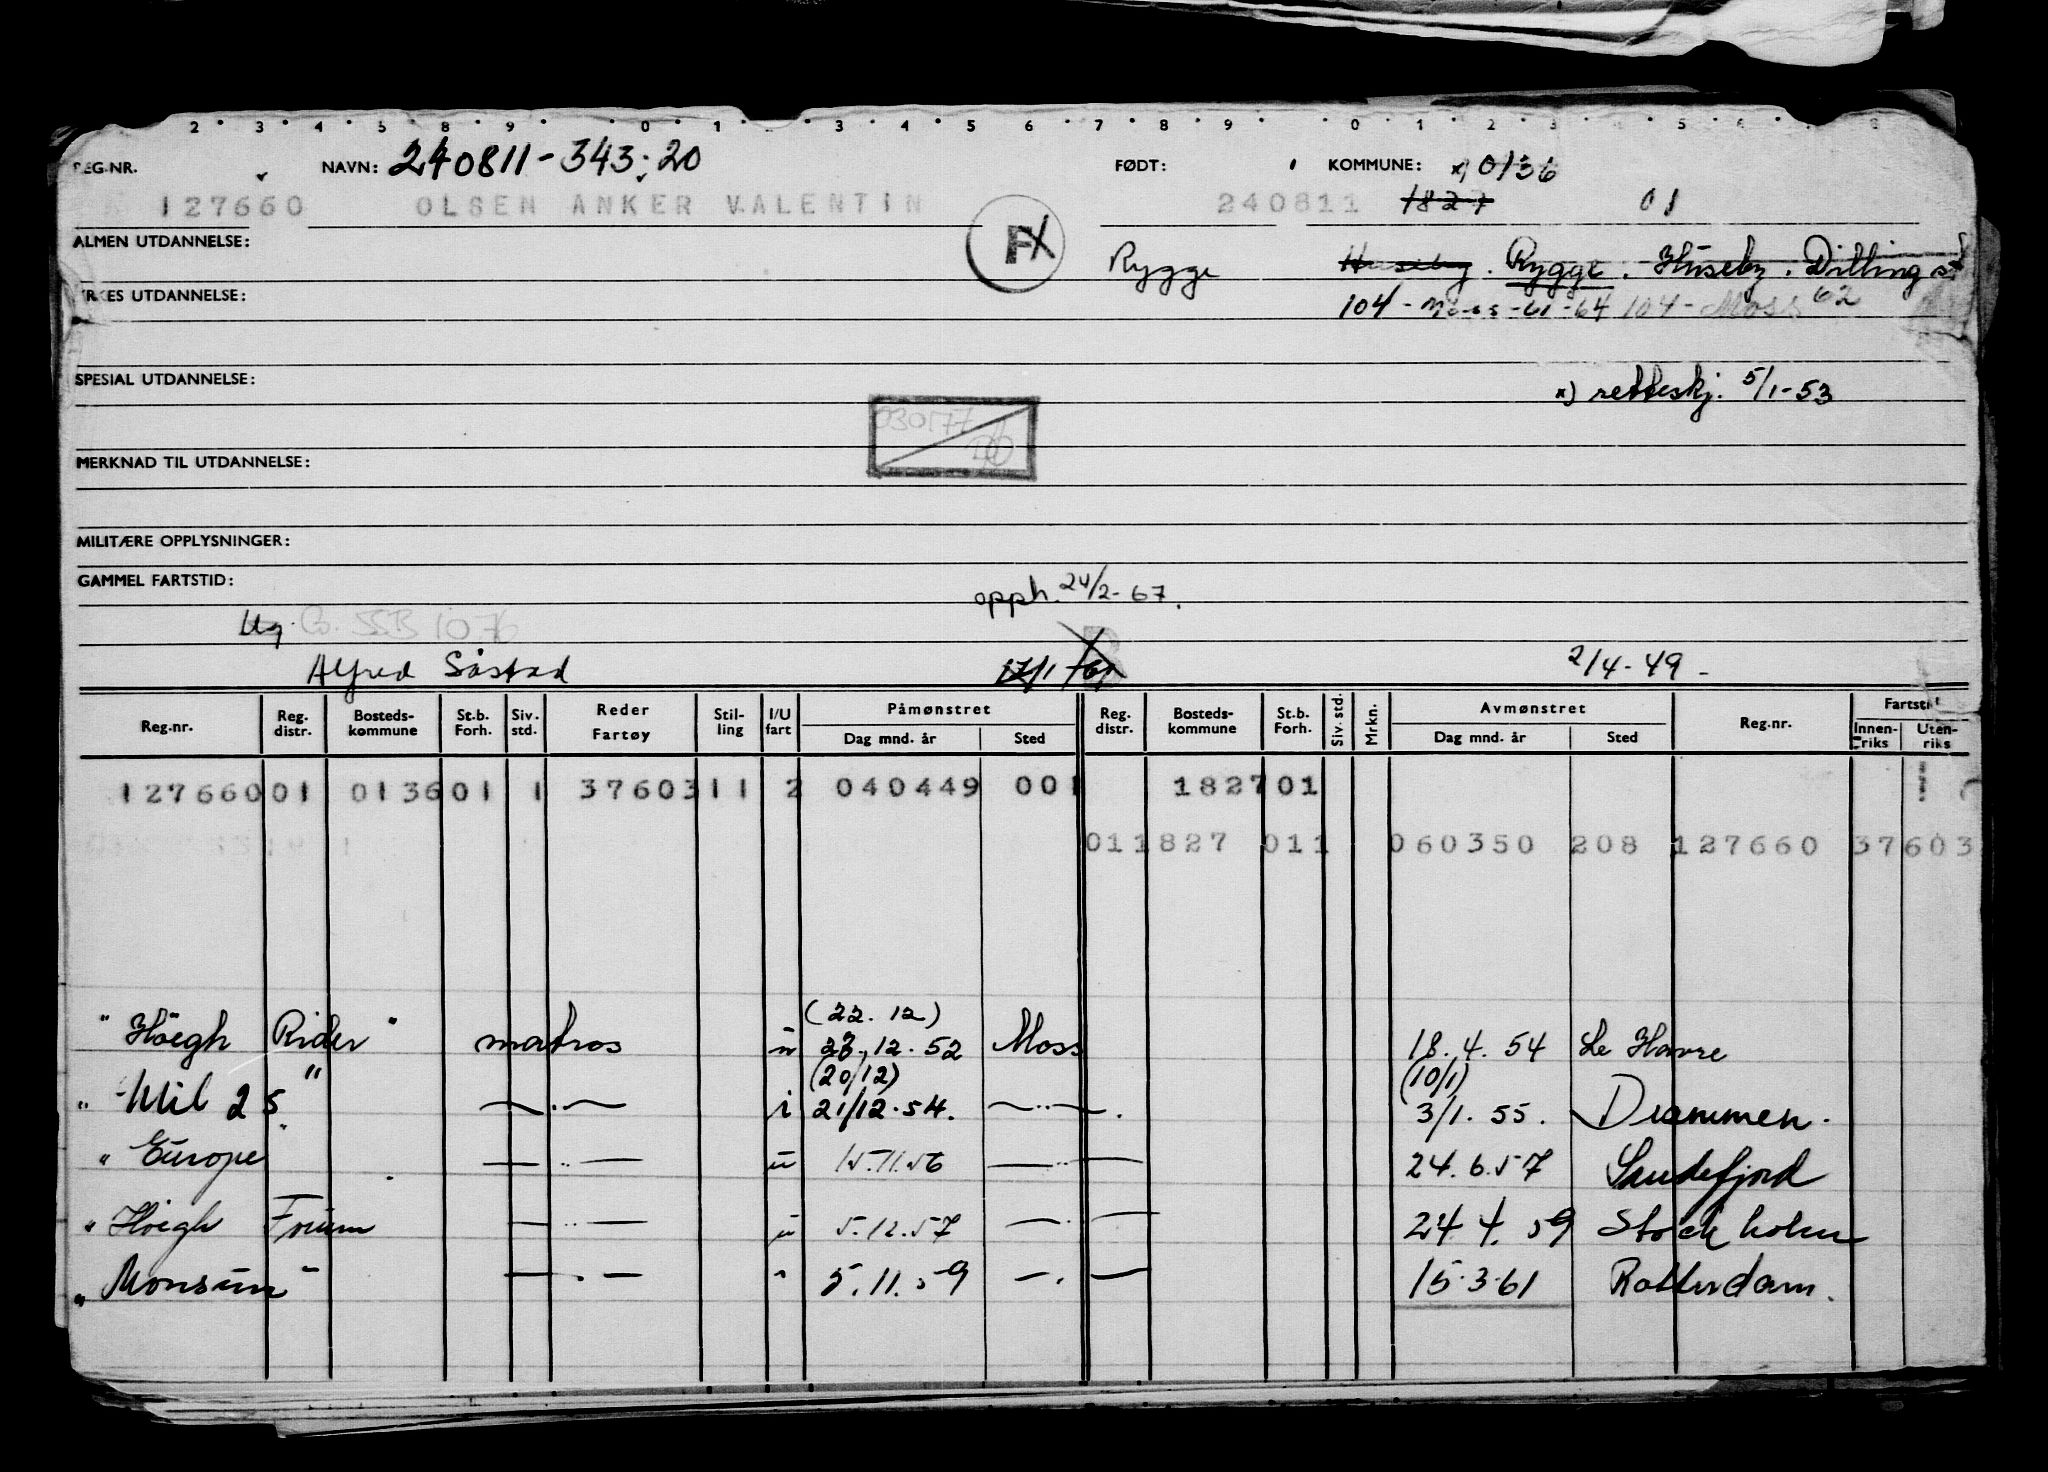 2 3 4 5 8 9 0 1 3 4 5 6 7 8 9 0 1 2 3 5 6 8
REG.NR. NAVN: 240811-343;20 FØDT: KOMMUNE: x) 0136
127660 OLSEN ANKER VALENTIN 240811 1827 01
FX
ALMEN UTDANNELSE: Rygge Huseby. Rygge. Huseby. Dilling st
YRKES UTDANNELSE: 104 - Moss - 61 - 64 104 - Moss 62
SPESIAL UTDANNELSE: x) retteskj. 5/1-53
030177
MERKNAD TIL UTDANNELSE:
MILITÆRE OPPLYSNINGER:
GAMMEL FARTSTID: opph. 24/2-67.
Ug. SSB 1076
Alfred Såstad 17/1-61 2/4-49
Reg.nr. Reg. distr. Bosteds-kommune St.b. Forh. Siv. std. Reder Fartøy Stil-ling I/U fart Påmønstret Dag mnd. år Sted Reg. distr. Bosteds-kommune St.b. Forh. Siv. std. Mrkn. Avmønstret Dag mnd. år Sted Reg.nr. Fartstid Innen-riks Uten-riks
127660 01 0136 01 1 37603 11 2 040449 001 1827 01
01 1827 01 1 060350 208 127660 37603
(22.12)
"Höegh Rider" matros u 23.12.52 Moss 18.4.54 Le Havre
(20/12) (10/1)
"Mil 25" —..— i 21/12.54. —..—. 3/1.55. Drammen.
"Europe" —..— u 15.11.56 —..— 24.6.57 Sandefjord
"Höegh Trium —..— u 5.12.57 —..— 24.4.59 Stockholm
"Monsun" —.— " 5.11.59 —.— 15.3.61 Rotterdam.